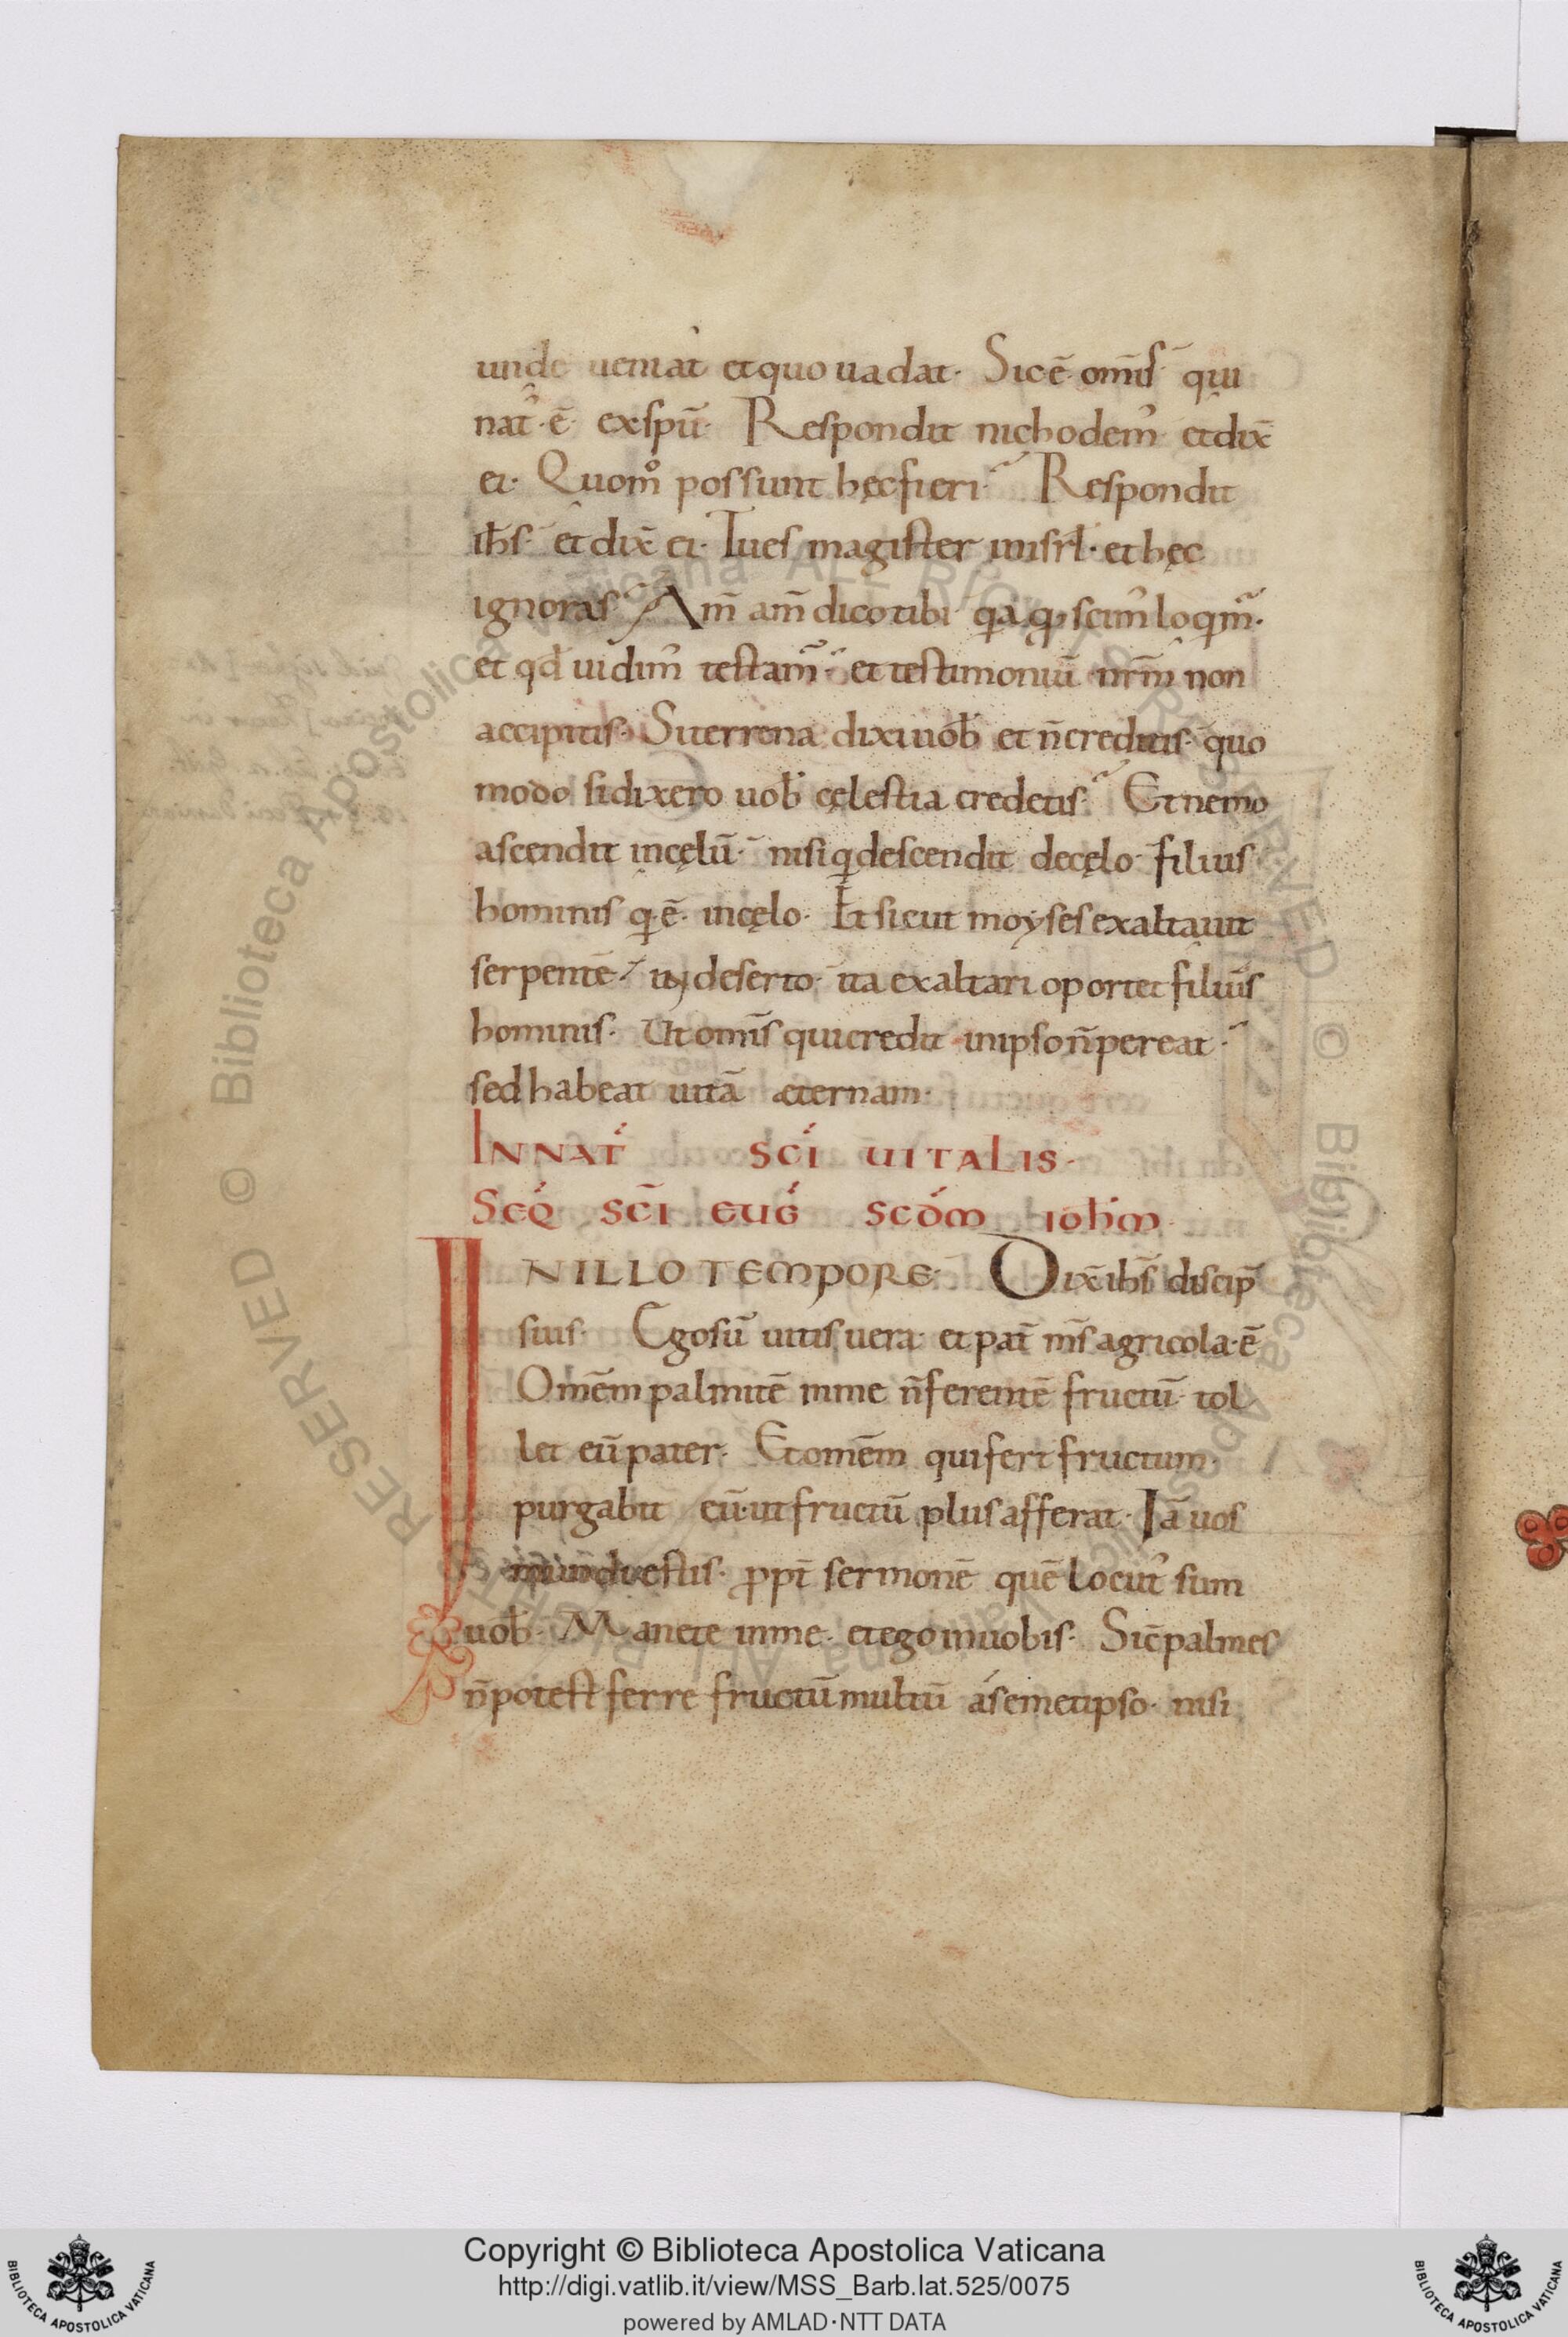 unde ueniat et quo uadat· Sic ē omīs qui
nat᷒ ·ē· ex spū· Respondit nichodem᷒ et dix̄
ei· Quom̊ possunt hęc fieri· Respondit
ih̄s et dix̄ ei· Tu es magister in isrł· et hęc
ignoras· Am̄ am̄ dico tibi qa qđ scim᷒ loqm̃·
et qđ uidim᷒ testam̃· et testimoniū nr̄m non
accipitis· Si terrena dixi uob̄ et n̄ creditis· quo
modo si dixero uob̄ cęlestia credetis· Et nemo
ascendit in cęlū· nisi q descendit de cęlo· filius
hominis q ·ē· in cęlo· Et sicut moyses exaltauit
serpentē in deserto· ita exaltari oportet filiūs
hominis· Ut omīs qui credit in ipso n̄ pereat·
sed habeat uitā æternam·
IN NAT̄ SC̄I UITALIS·
SEQ̄ SC̄I EUḠ SCDM̄ IOH̄M
IN ILLO TEMPORE· Dix̄ ih̄s discip̄
suis· Ego sū uitis uera· et pat̄ m̄s agricola ·ē
Omēm palmitē in me n̄ ferentē fructū· tol
let eū pater· Et omēm qui fert fructum·
purgabit eū· ut fructū plus afferat· Iā uos
mundi estis· ppt̄ sermonē quē locut᷒ sum
uob̄· Manete in me· et ego in uobis· Sic̄ palmes
n̄ potest ferre fructū multū á semetipso· nisi
Copyright © Biblioteca Apostolica Vaticana
http://digi.vatlib.it/view/MSS_Barb.lat.525/0075
powered by AMLAD·NTT DATA
BIBLIOTECA APOSTOLICA VATICANA
BIBLIOTECA APOSTOLICA VATICANA